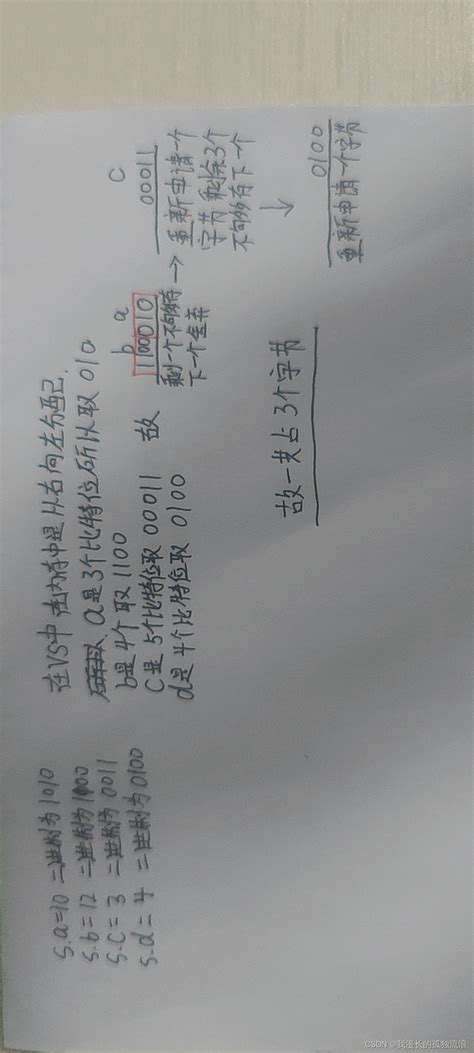 s.a=10 二进制为1010
s.b=12 二进制为1100
s.c=3 二进制为0011
s.d=4 二进制为0100
在VS中 在内存中是从右向左分配.
a是3个比特位所以取 010
b是4个取1100
c是 5个比特位取 00011 故
d是4个比特位取 0100
b a
1100010
剩一个不够存
下一个舍弃
→
c
00011
重新申请一个
字节 剩余3个
不够存下一个
↓
0100
重新申请一个字节
故一共占3个字节
CSDN @我漫长的孤独流浪